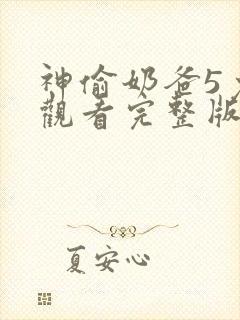 神偷奶爸5
觀看完整版
夏安心